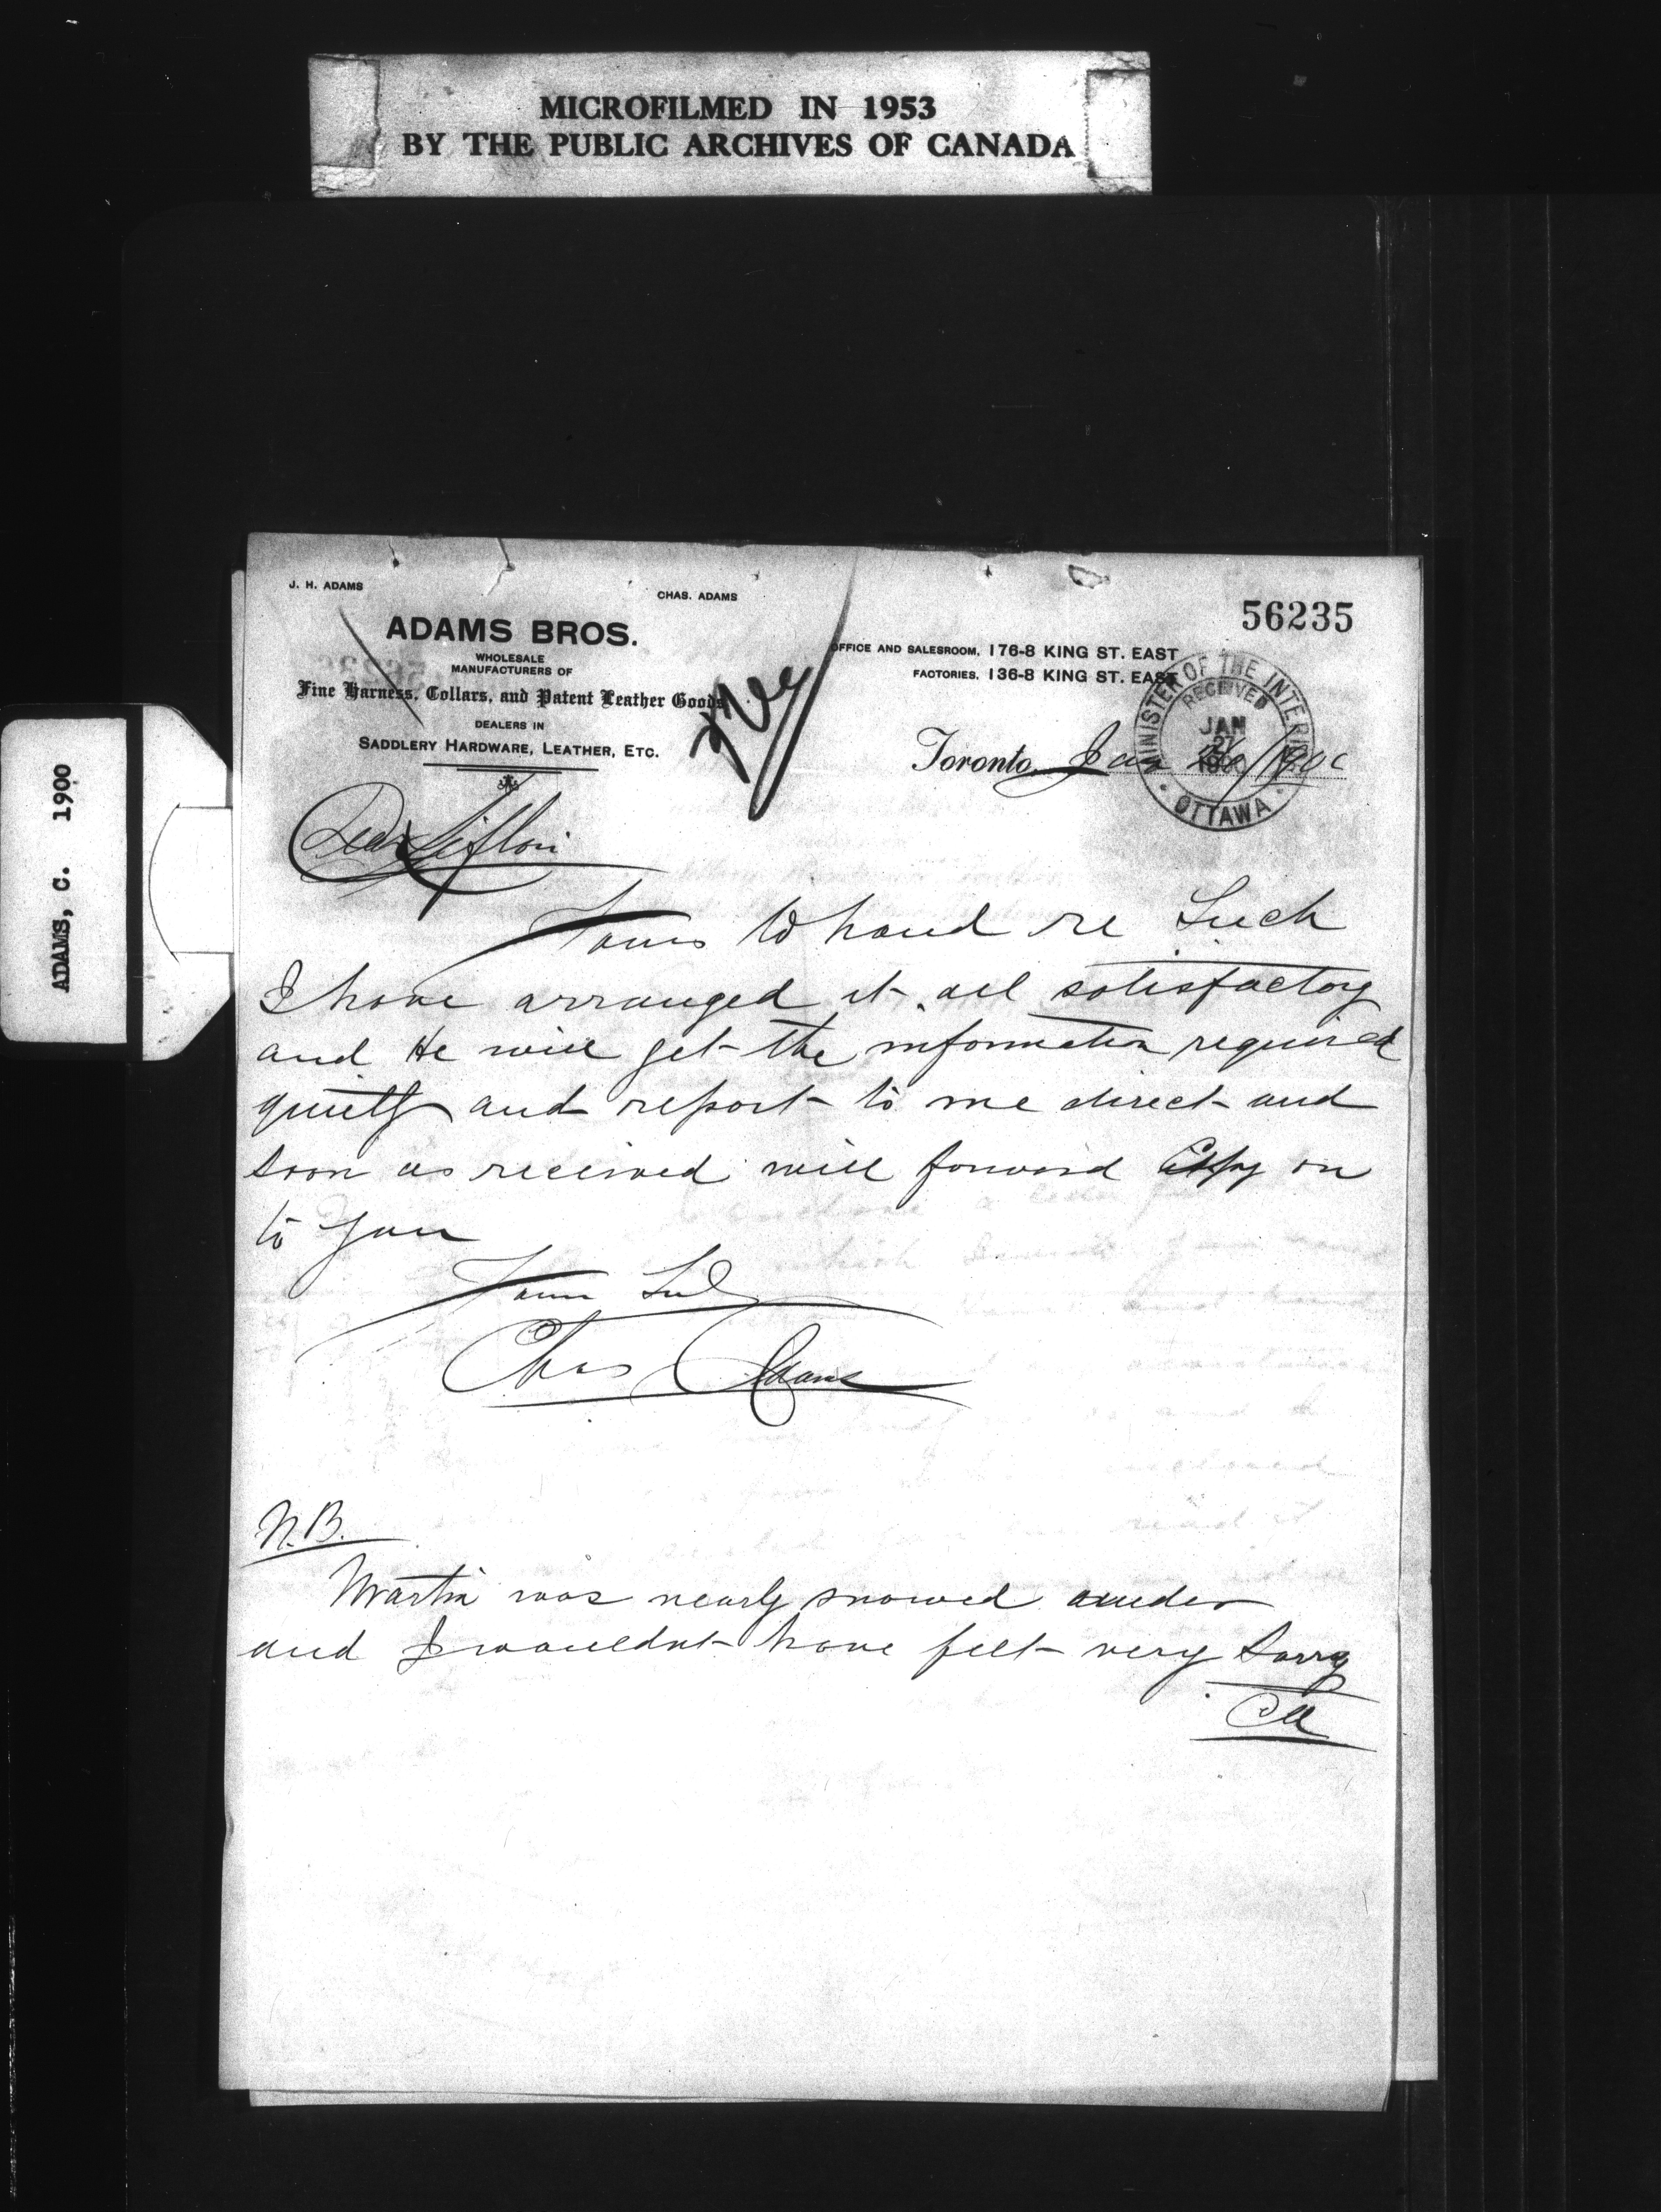 MICROFILMED IN 1953
BY THE PUBLIC ARCHIVES OF CANADA
ADAMS, C. 1900
J. H. ADAMS
CHAS. ADAMS
56235
ADAMS BROS.
WHOLESALE
MANUFACTURERS OF
Fine Harness, Collars, and Patent Leather Goods
DEALERS IN
SADDLERY HARDWARE, LEATHER, ETC.
OFFICE AND SALESROOM, 176-8 KING ST. EAST
FACTORIES, 136-8 KING ST. EAST
MINISTER OF THE INTERIOR
RECEIVED
JAN
27
1900
OTTAWA
Toronto, Jan 1900
Dear Sifton
Yours to hand re Luch
I have arranged it all satisfactory
and He will get the information required
quietly and report to me direct and
soon as received will forward Copy on
to you
Yours
Chas Adams
N.B.
Martin was nearly snowed under
and I wouldnt have felt very sorry
CA